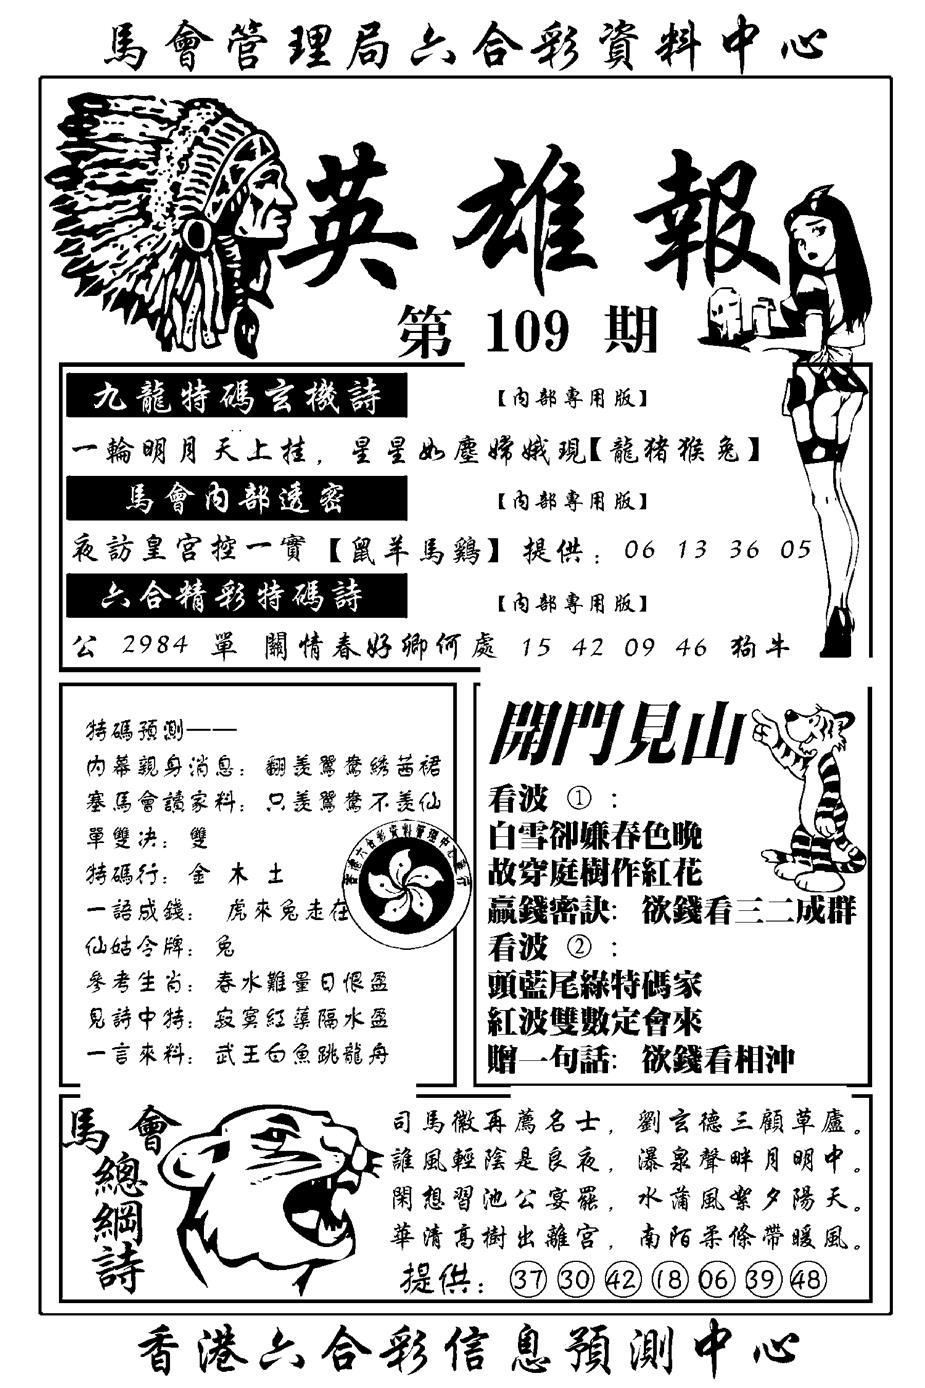 馬會管理局六合彩資料中心
英雄報
第 109 期
九龍特碼玄機詩 【內部專用版】
一輪明月天上挂，星星如塵嫦娥現【龍猪猴兔】
馬會內部透密 【內部專用版】
夜訪皇宮控一實【鼠羊馬鷄】提供：06 13 36 05
六合精彩特碼詩 【內部專用版】
公 2984 單 關情春好卿何處 15 42 09 46 狗牛
特碼預測——
內幕親身消息：翻羨鴛鴦綉茜裙
塞馬會讀家料：只羨鴛鴦不羨仙
單雙决：雙
特碼行：金 木 土
一語成錢： 虎來兔走在
仙姑令牌：兔
參考生肖：春水難量日假盈
見詩中特：寂寞紅蕖隔水盈
一言來料：武王白魚跳龍舟
香港六合彩資料管理中心發行
開門見山
看波 ①：
白雪卻嫌春色晚
故穿庭樹作紅花
贏錢密訣：欲錢看三二成群
看波 ②：
頭藍尾綠特碼家
紅波雙數定會來
贈一句話：欲錢看相沖
馬會
總綱詩
司馬徽再薦名士，劉玄德三顧草廬。
誰風輕陰是良夜，瀑泉聲畔月明中。
閑想習池公宴罷，水蒲風絮夕陽天。
華清高樹出離宮，南陌柔條帶暖風。
提供：㊲ ㉚ ㊷ ⑱ 06 ㊴ ㊽
香港六合彩信息預測中心